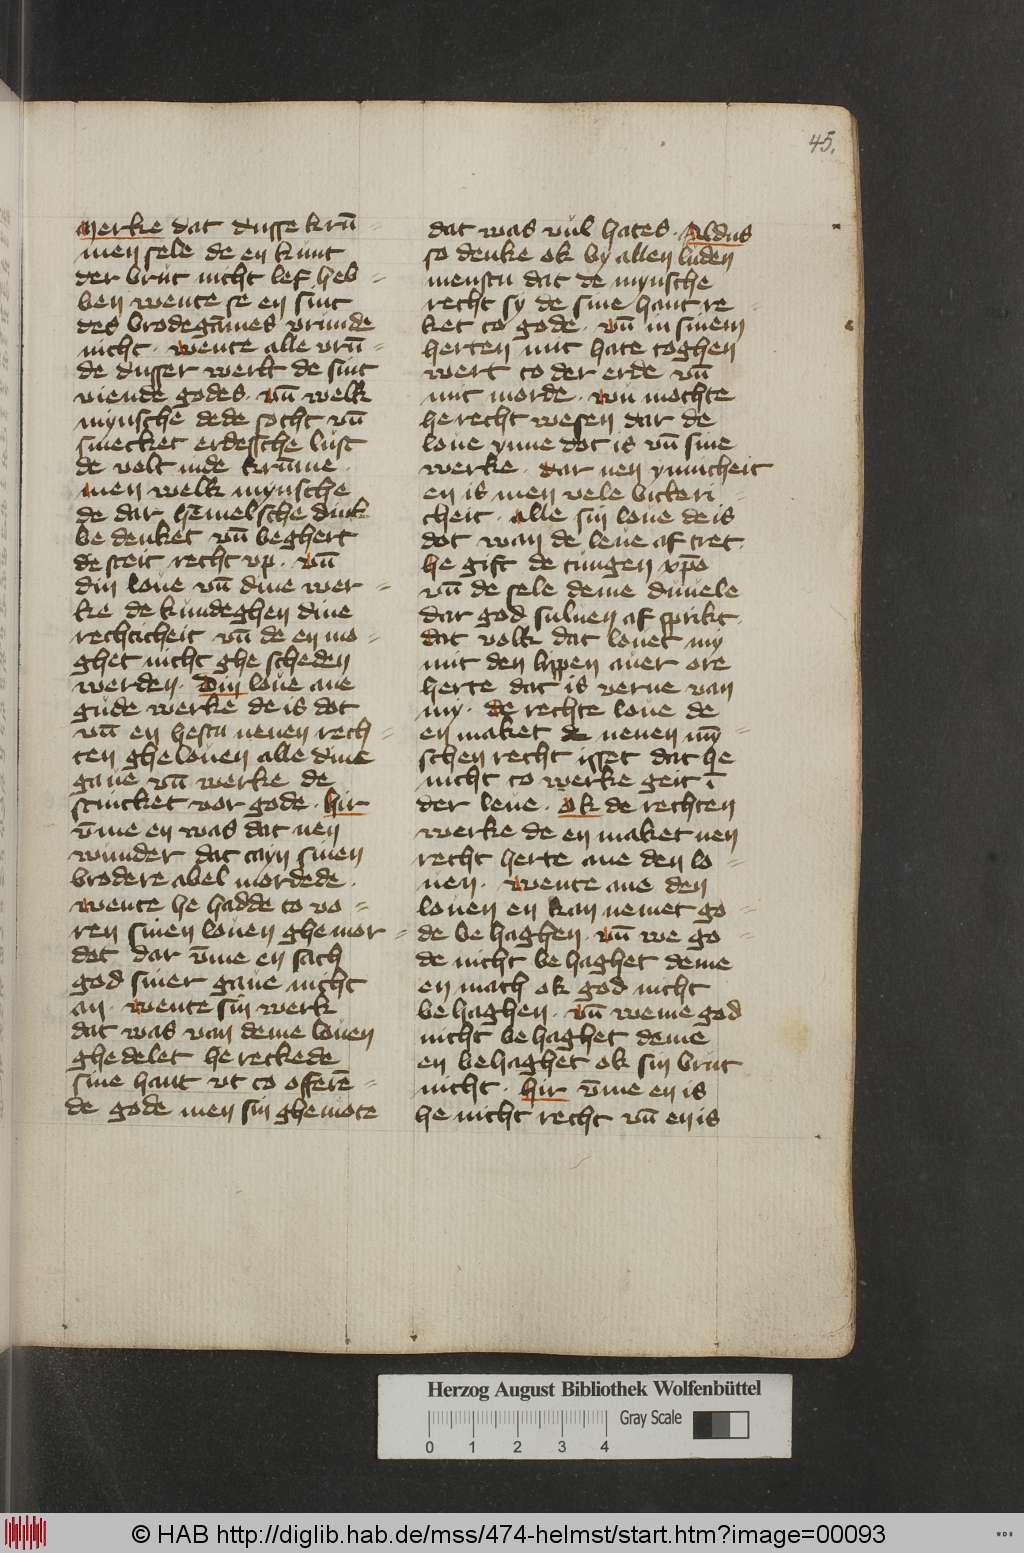 45.
Merke dat dusse krū⸗
men sele de en kunt
der brut nicht lef heb⸗
ben wente se en sint
des brodegāmes vrunde
nicht. wente alle vrū⸗
de dusser werlt de sint
viende godes. vn̄ welk
mynsche dede socht vn̄
smecket erdessche lust
de volt in de krūme.
men welk mynsche
de dar hēmelsche dink
be denket vn̄ beghert
de steit recht vp. vn̄
din loue vn̄ dine wer⸗
ke de kundeghen dine
rechticheit vn̄ de en mo⸗
ghet nicht ghe scheden
werden. Din loue ane
gude werke de is dot
vn̄ en hestu nenen rech⸗
ten ghelouen alle dine
gaue vn̄ werke de
stincket vor gode. hir
v̄me en was dat nen
wunder dat cayn sinen
brodere abel mordede.
wente he hadde to vo⸗
ren sinen louen ghemor⸗
dot dar v̄me en sach
god siner gaue nicht
an. wente sin werk
dat was van deme louen
ghedelet he reckede
sine hant vt to offerē⸗
de gode men sin ghemote
dat was vul hates. Aldus
so denke ok by allen luden
menstu dat de mynsche
recht sy de sine hant re⸗
ket to gode. vn̄ in sinem
herten mit hate toghen
wert to der erde vn̄
mit morde. wu mochte
he recht wesen dar de
loue ynne dot is vn̄ sine
werke. dar nen ynnicheit
en is men vele bitteri⸗
cheit. alle sin loue de is
dot wan de leue af tret.
he gift de tungen xp̄o
vn̄ de sele deme duuele
dar god suluen af sprikt.
dat volk dat louet my
mit den lippen auer ore
herte dat is verne van
my. de rechte loue de
en maket nenen mȳ⸗
schen recht isset dat he
nicht to werke geit ī
der leue. Ok de rechten
werke de en maket nen
recht herte ane den lo⸗
uen. wente ane den
louen en kan nemet go⸗
de be haghen. vn̄ we go⸗
de nicht be haghet deme
en mach ok god nicht
be haghen. vn̄ weme god
nicht be haghet deme
en behaghet ok sin brut
nicht. hir v̄me en is
he nicht recht vn̄ en is
Herzog August Bibliothek Wolfenbüttel
Gray Scale
0 1 2 3 4
© HAB http://diglib.hab.de/mss/474-helmst/start.htm?image=00093